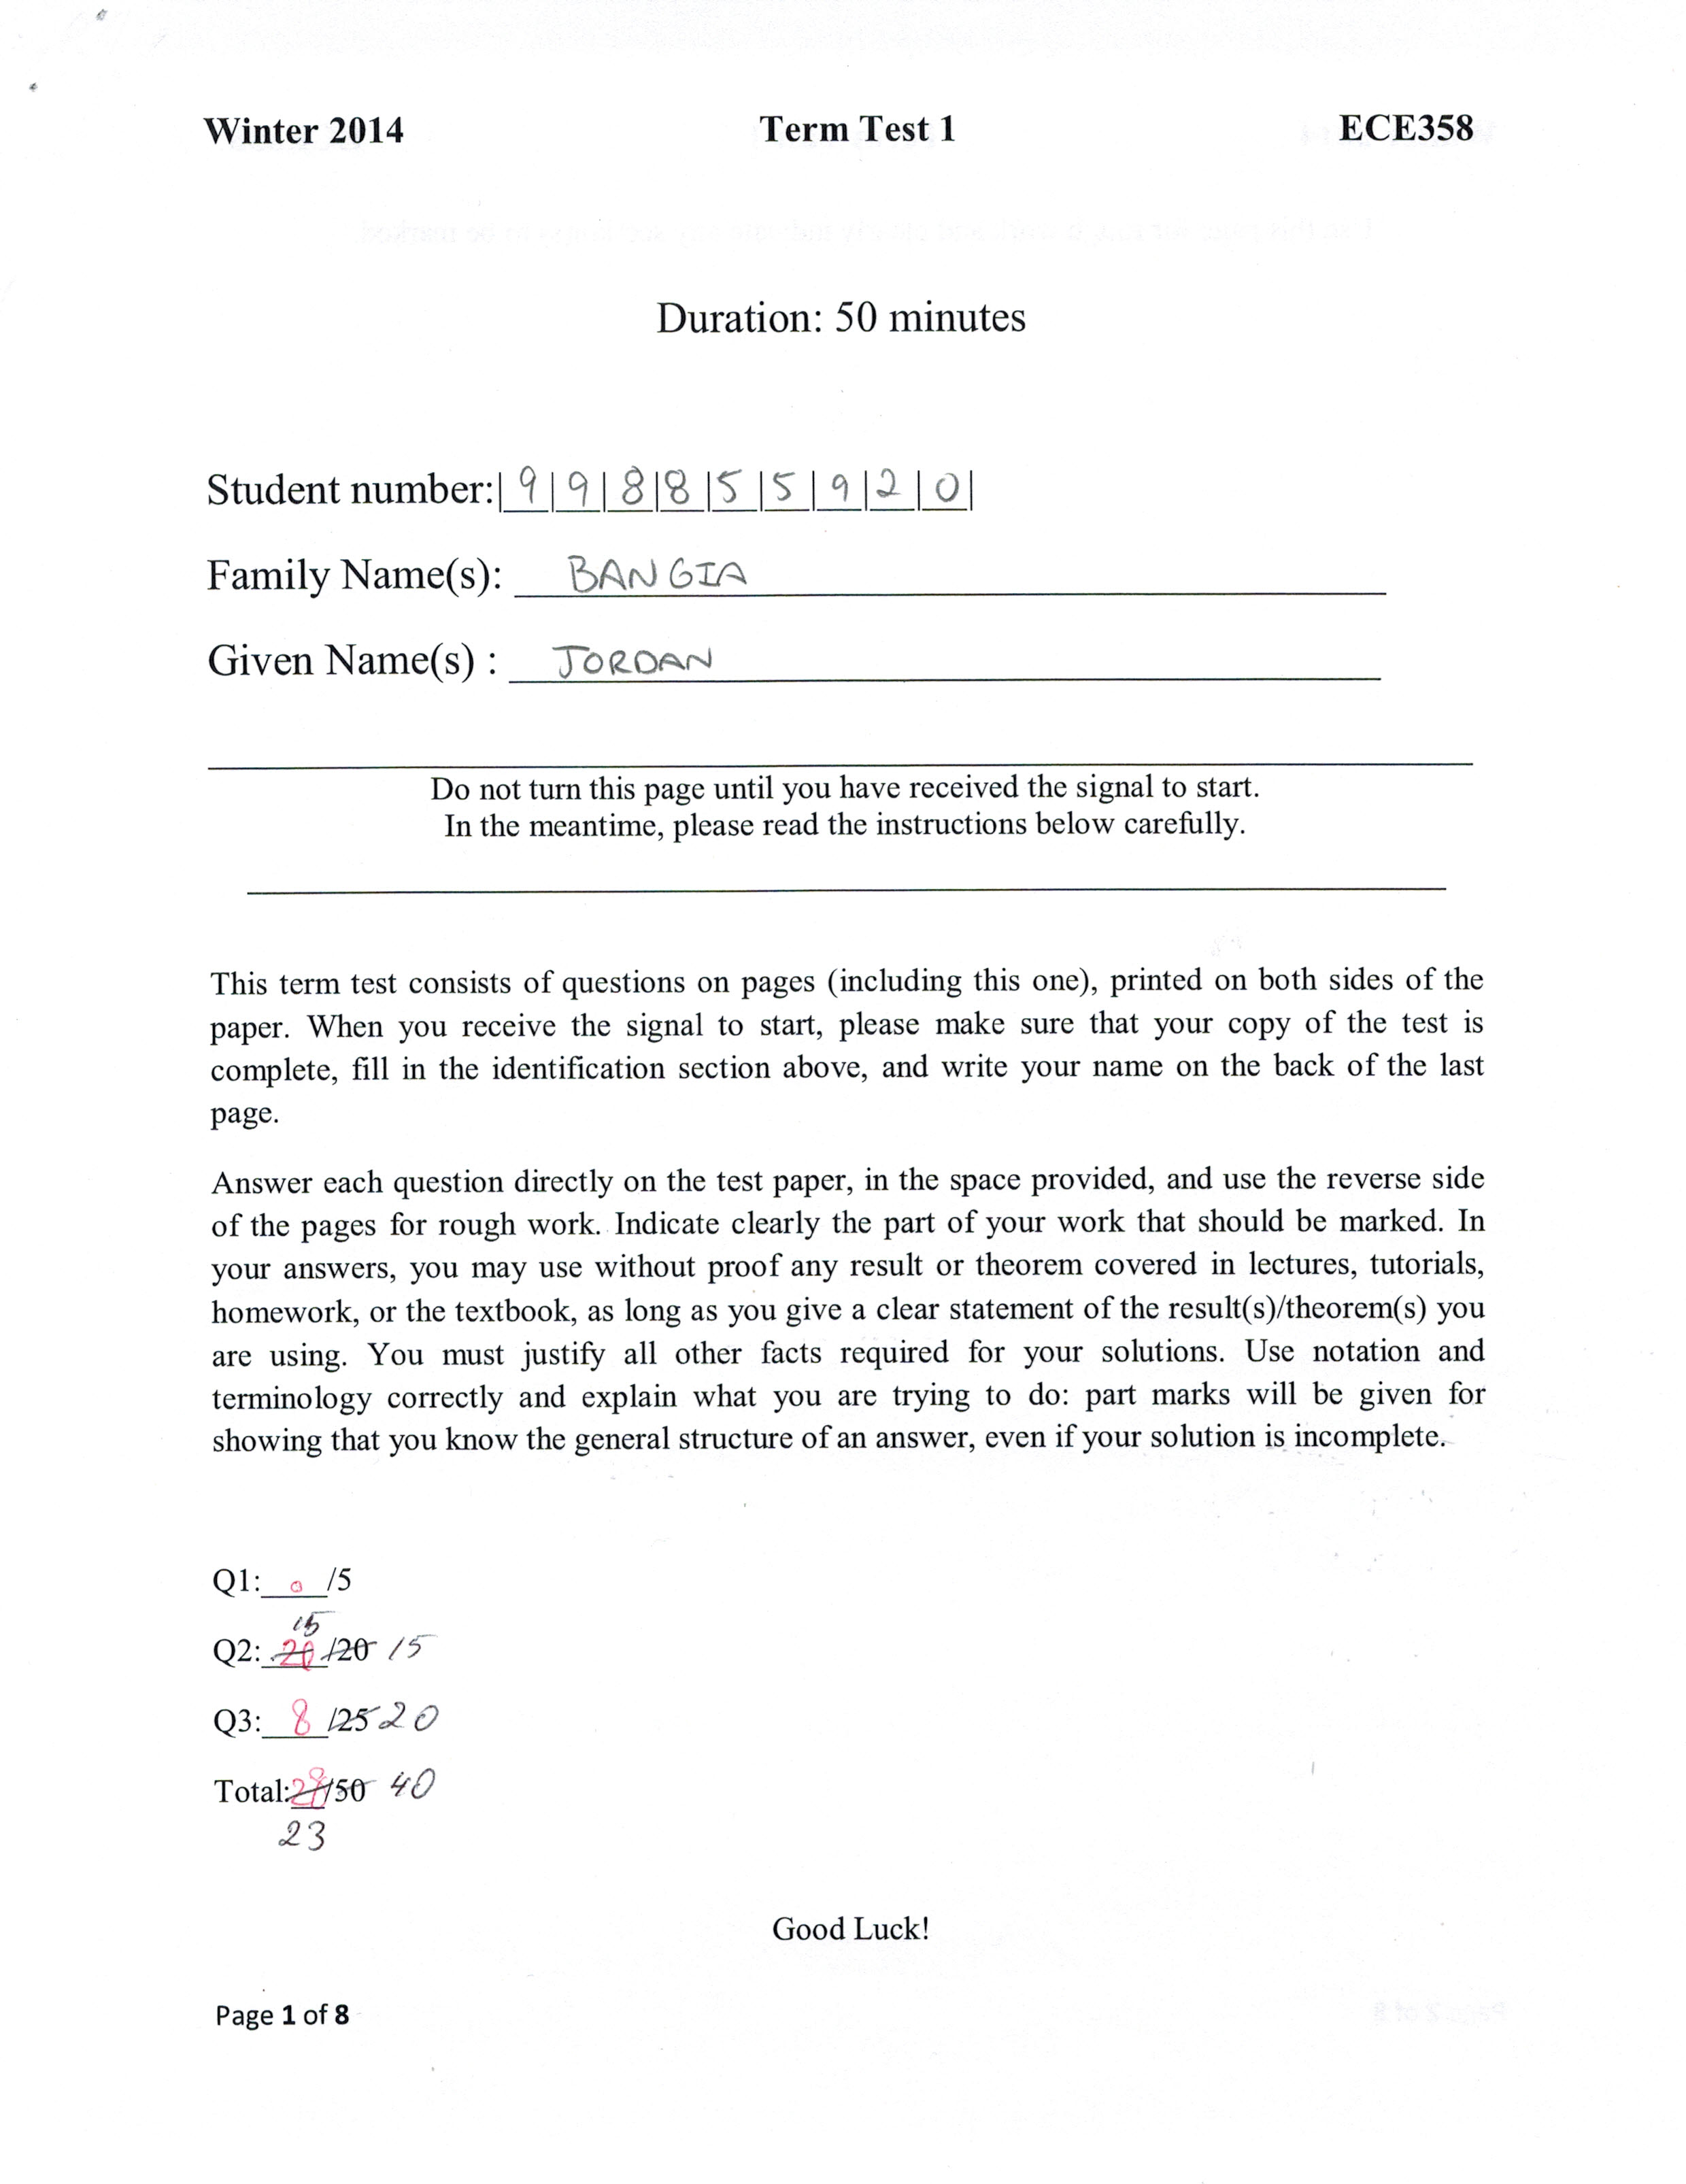 Winter 2014 Term Test 1 ECE358
Duration: 50 minutes
Student number:| 9 | 9 | 8 | 8 | 5 | 5 | 9 | 2 | 0 |
Family Name(s): BANGIA
Given Name(s) : JORDAN
Do not turn this page until you have received the signal to start.
In the meantime, please read the instructions below carefully.
This term test consists of questions on pages (including this one), printed on both sides of the
paper. When you receive the signal to start, please make sure that your copy of the test is
complete, fill in the identification section above, and write your name on the back of the last
page.
Answer each question directly on the test paper, in the space provided, and use the reverse side
of the pages for rough work. Indicate clearly the part of your work that should be marked. In
your answers, you may use without proof any result or theorem covered in lectures, tutorials,
homework, or the textbook, as long as you give a clear statement of the result(s)/theorem(s) you
are using. You must justify all other facts required for your solutions. Use notation and
terminology correctly and explain what you are trying to do: part marks will be given for
showing that you know the general structure of an answer, even if your solution is incomplete.
Q1: 0 /5
15
Q2: 20 /20 15
Q3: 8 /25 20
Total: 28/50 40
23
Good Luck!
Page 1 of 8